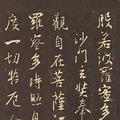 般若波羅蜜多
沙門玄奘奉
觀自在菩薩
羅蜜多時照見
度一切苦厄